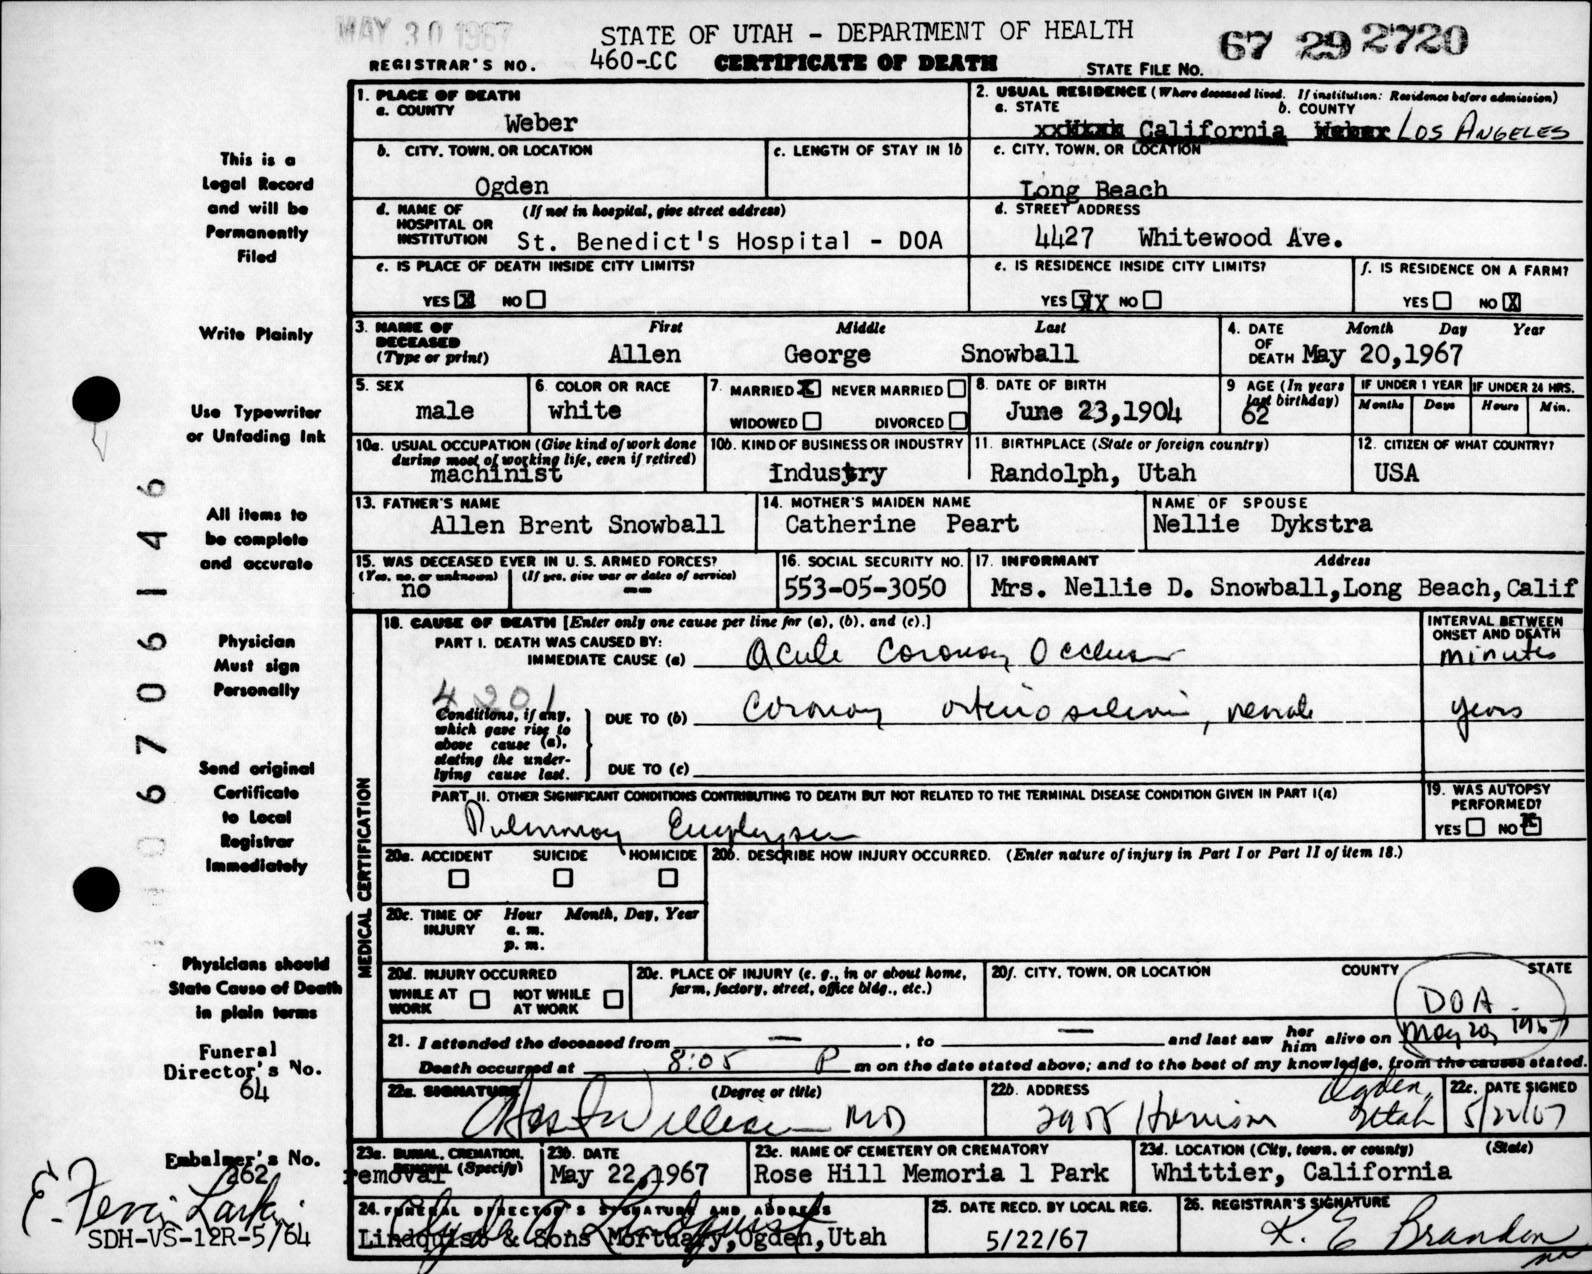 MAY 30 1967
STATE OF UTAH - DEPARTMENT OF HEALTH
67 29 2720
REGISTRAR'S NO. 460-CC CERTIFICATE OF DEATH STATE FILE NO.
This is a
Legal Record
and will be
Permanently
Filed
Write Plainly
Use Typewriter
or Unfading Ink
All items to
be complete
and accurate
Physician
Must sign
Personally
Send original
Certificate
to Local
Registrar
Immediately
Physicians should
State Cause of Death
in plain terms
Funeral
Director's No.
64
Embalmer's No.
262
E. Ferrin Larkin
SDH-VS-12R-5/64
06706146
1. PLACE OF DEATH
a. COUNTY
Weber
2. USUAL RESIDENCE (Where deceased lived. If institution: Residence before admission)
a. STATE b. COUNTY
xxUtah California Weber LOS ANGELES
b. CITY, TOWN, OR LOCATION
Ogden
c. LENGTH OF STAY IN 1b
c. CITY, TOWN, OR LOCATION
Long Beach
d. NAME OF HOSPITAL OR INSTITUTION (If not in hospital, give street address)
St. Benedict's Hospital - DOA
d. STREET ADDRESS
4427 Whitewood Ave.
e. IS PLACE OF DEATH INSIDE CITY LIMITS?
YES X NO
e. IS RESIDENCE INSIDE CITY LIMITS?
YES XX NO
f. IS RESIDENCE ON A FARM?
YES NO X
3. NAME OF DECEASED (Type or print) First Middle Last
Allen George Snowball
4. DATE OF DEATH Month Day Year
May 20,1967
5. SEX
male
6. COLOR OR RACE
white
7. MARRIED X NEVER MARRIED
WIDOWED DIVORCED
8. DATE OF BIRTH
June 23,1904
9 AGE (In years last birthday)
62
IF UNDER 1 YEAR IF UNDER 24 HRS.
Months Days Hours Min.
10a. USUAL OCCUPATION (Give kind of work done during most of working life, even if retired)
machinist
10b. KIND OF BUSINESS OR INDUSTRY
Industry
11. BIRTHPLACE (State or foreign country)
Randolph, Utah
12. CITIZEN OF WHAT COUNTRY?
USA
13. FATHER'S NAME
Allen Brent Snowball
14. MOTHER'S MAIDEN NAME
Catherine Peart
NAME OF SPOUSE
Nellie Dykstra
15. WAS DECEASED EVER IN U. S. ARMED FORCES?
(Yes, no, or unknown) (If yes, give war or dates of service)
no --
16. SOCIAL SECURITY NO.
553-05-3050
17. INFORMANT Address
Mrs. Nellie D. Snowball,Long Beach,Calif
MEDICAL CERTIFICATION
18. CAUSE OF DEATH [Enter only one cause per line for (a), (b), and (c).]
INTERVAL BETWEEN ONSET AND DEATH
PART I. DEATH WAS CAUSED BY:
IMMEDIATE CAUSE (a) Acute Coronary Occlusion minutes
4201
Conditions, if any, which gave rise to above cause (a), stating the underlying cause last.
DUE TO (b) Coronary arteriosclerosis, years
DUE TO (c)
PART II. OTHER SIGNIFICANT CONDITIONS CONTRIBUTING TO DEATH BUT NOT RELATED TO THE TERMINAL DISEASE CONDITION GIVEN IN PART I(a)
Pulmonary Emphysema
19. WAS AUTOPSY PERFORMED?
YES NO X
20a. ACCIDENT SUICIDE HOMICIDE
20b. DESCRIBE HOW INJURY OCCURRED. (Enter nature of injury in Part I or Part II of item 18.)
20c. TIME OF INJURY Hour Month, Day, Year
a. m.
p. m.
20d. INJURY OCCURRED
WHILE AT WORK NOT WHILE AT WORK
20e. PLACE OF INJURY (e. g., in or about home, farm, factory, street, office bldg., etc.)
20f. CITY, TOWN, OR LOCATION COUNTY STATE
DOA
21. I attended the deceased from —, to — and last saw her him alive on May 20, 1967
Death occurred at 8:05 P m on the date stated above; and to the best of my knowledge, from the causes stated.
22a. SIGNATURE (Degree or title)
Williams MD
22b. ADDRESS
Harrison Ogden, Utah
22c. DATE SIGNED
5/22/67
23a. BURIAL, CREMATION, REMOVAL (Specify)
removal
23b. DATE
May 22,1967
23c. NAME OF CEMETERY OR CREMATORY
Rose Hill Memoria l Park
23d. LOCATION (City, town, or county) (State)
Whittier, California
24. FUNERAL DIRECTOR'S SIGNATURE AND ADDRESS
Clyde A Lindquist
Lindquist & Sons Mortuary,Ogden,Utah
25. DATE RECD. BY LOCAL REG.
5/22/67
26. REGISTRAR'S SIGNATURE
K. E Brandon